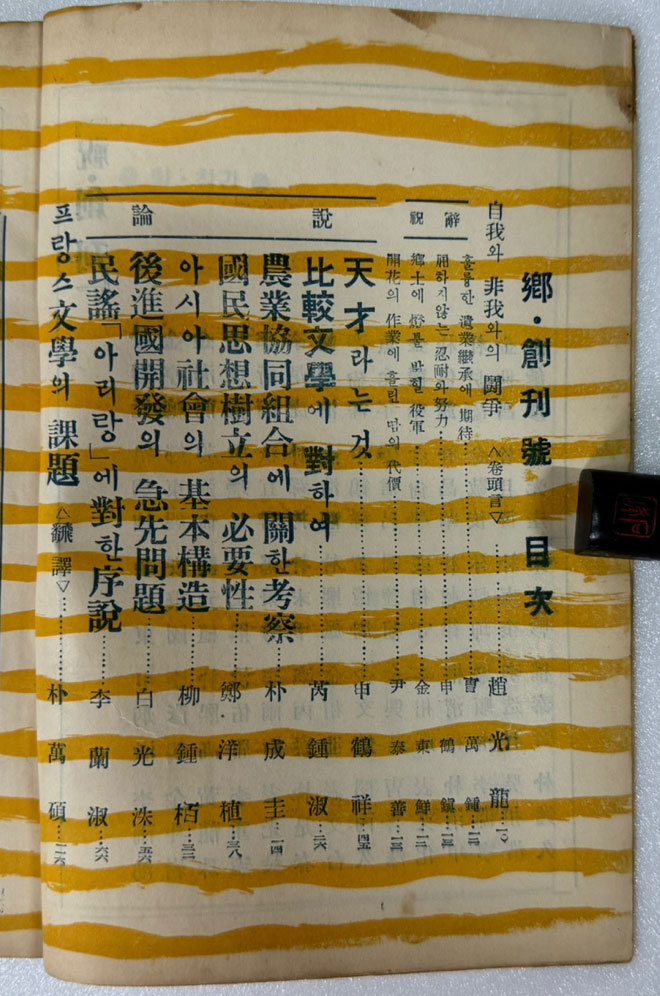 鄕·創刊號 目次
自我와 非我와의 鬪爭 〈卷頭言〉……趙光龍…一〇
祝辭
훌륭한 遺業繼承에 期待……曺萬鍾…一二
굴하지않는 忍耐와 努力……申鶴鎭…一三
鄕土에 燈불 밝힐 役軍……金東鮮…一二
開花의 作業에 흘린 땀의 代價……尹泰善…一三
論說
天才라는 것……申鶴祥…四五
比較文學에 對하여……芮鍾淑…二六
農業協同組合에 關한 考察……朴成圭…一四
國民思想樹立의 必要性……鄭洋植…三八
아시아社會의 基本構造……柳鍾栢…三二
後進國開發의 急先問題……白光洙…五六
民謠「아리랑」에 對한 序說……李蘭淑…六六
프랑스文學의 課題 〈飜譯〉……朴萬碩…二六